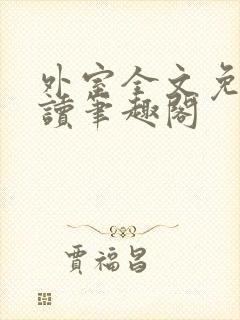 外室全文免
讀筆趣閣
賈福昌